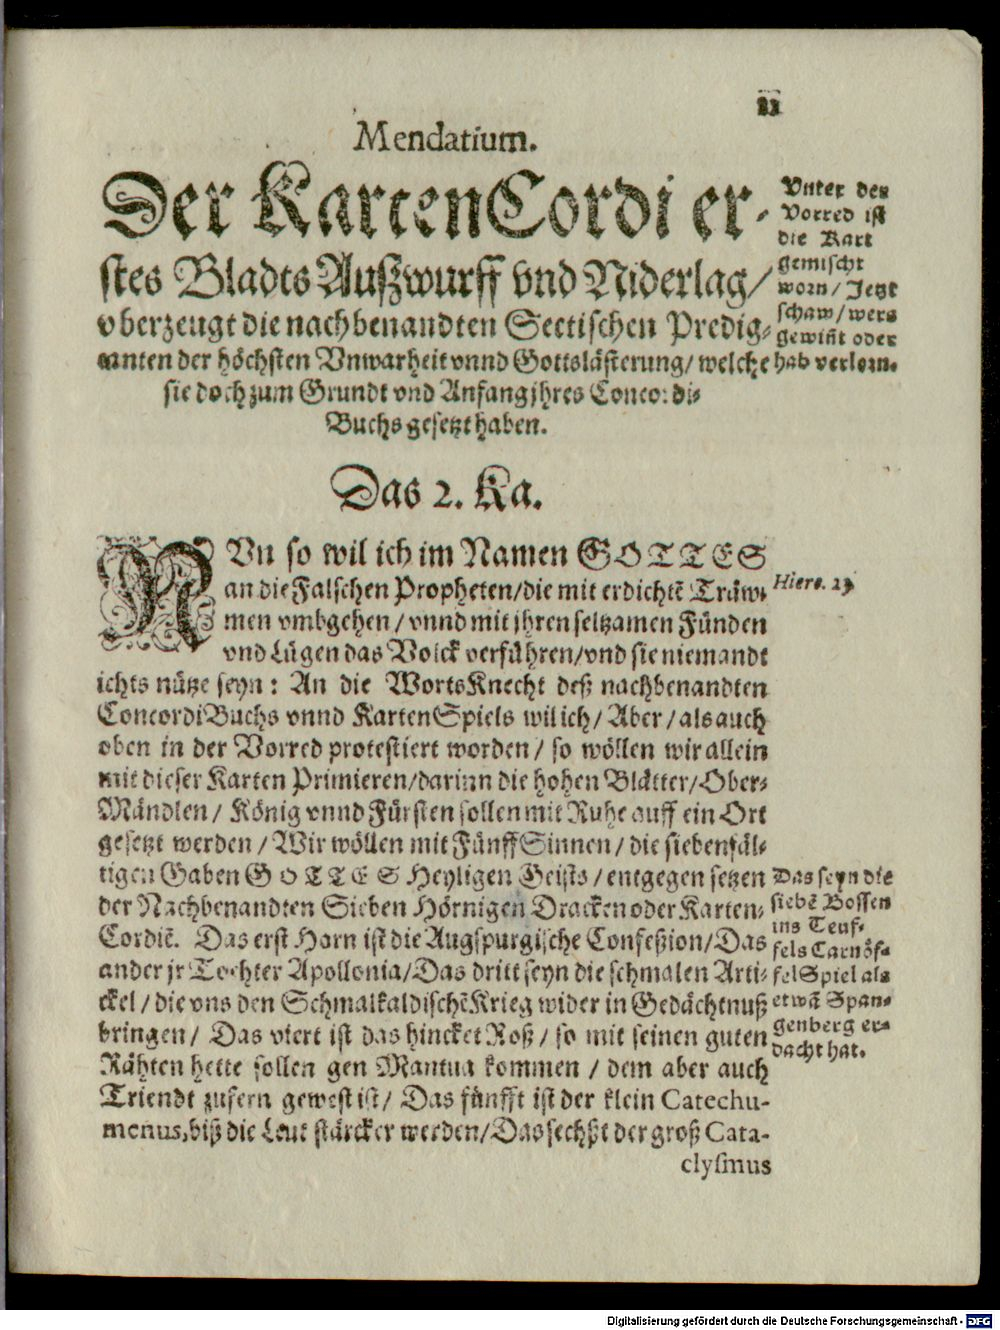 11
Mendatium.
Der KartenCordi er-
stes Bladts Außwurff vnd Niderlag/
vberzeugt die nachbenandten Sectischen Predig-
canten der höchsten Vnwarheit vnnd Gottslästerung/ welche
sie doch zum Grundt vnd Anfang jhres Concordi-
Buchs gesetzt haben.
Vnter des
Vorred ist
die Kart
gemischt
worn/ Jetzt
schaw/ wers
gewiñt oder
hab verlorn.
Das 2. Ka.
NVn so wil ich im Namen GOTTES
an die Falschen Propheten/die mit erdichtẽ Träw-
men vmbgehen/ vnnd mit jhren seltzamen Fünden
vnd Lügen das Volck verführen/vnd sie niemandt
ichts nütze seyn: An die WortsKnecht deß nachbenandten
ConcordiBuchs vnnd KartenSpiels wil ich/ Aber/ als auch
oben in der Vorred protestiert worden/ so wöllen wir allein
mit dieser Karten Primieren/darinn die hohen Blätter/Ober-
Mändlen/ König vnnd Fürsten sollen mit Ruhe auff ein Ort
gesetzt werden/ Wir wöllen mit Fünff Sinnen/ die siebenfäl-
tigen Gaben GOTTES Heyligen Geists/ entgegen setzen
der Nachbenandten Sieben Hörnigen Dracken oder Karten-
Cordiẽ. Das erst Horn ist die Augspurgische Confeßion/Das
ander jr Tochter Apollonia/Das dritt seyn die schmalen Arti-
ckel/ die vns den SchmalkaldischẽKrieg wider in Gedächtnuß
bringen/ Das viert ist das hincket Roß/ so mit seinen guten
Rähten hette sollen gen Mantua kommen/ dem aber auch
Triendt zufern gewest ist/ Das fünfft ist der klein Catechu-
menus, biß die Leut stärcker werden/Das sechßt der groß Cata-
clysmus
Hiere. 23
Das seyn die
siebẽ Bossen
ins Teuf-
fels Carnöf-
felSpiel als
etwã Span-
genberg er-
dacht hat.
Digitalisierung gefördert durch die Deutsche Forschungsgemeinschaft - DFG